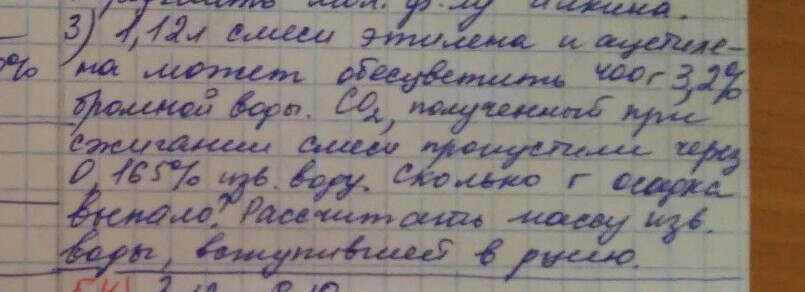 мол. ф-лу алкина.
3) 1,12л смеси этилена и ацетиле-
0% на может обесцветить 400г 3,2%
бромной воды. CO₂, полученный при
сжигании смеси пропустили через
0,165% изв. воду. Сколько г осадка
выпало? Рассчитать массу изв.
воды, вступившей в р-цию.